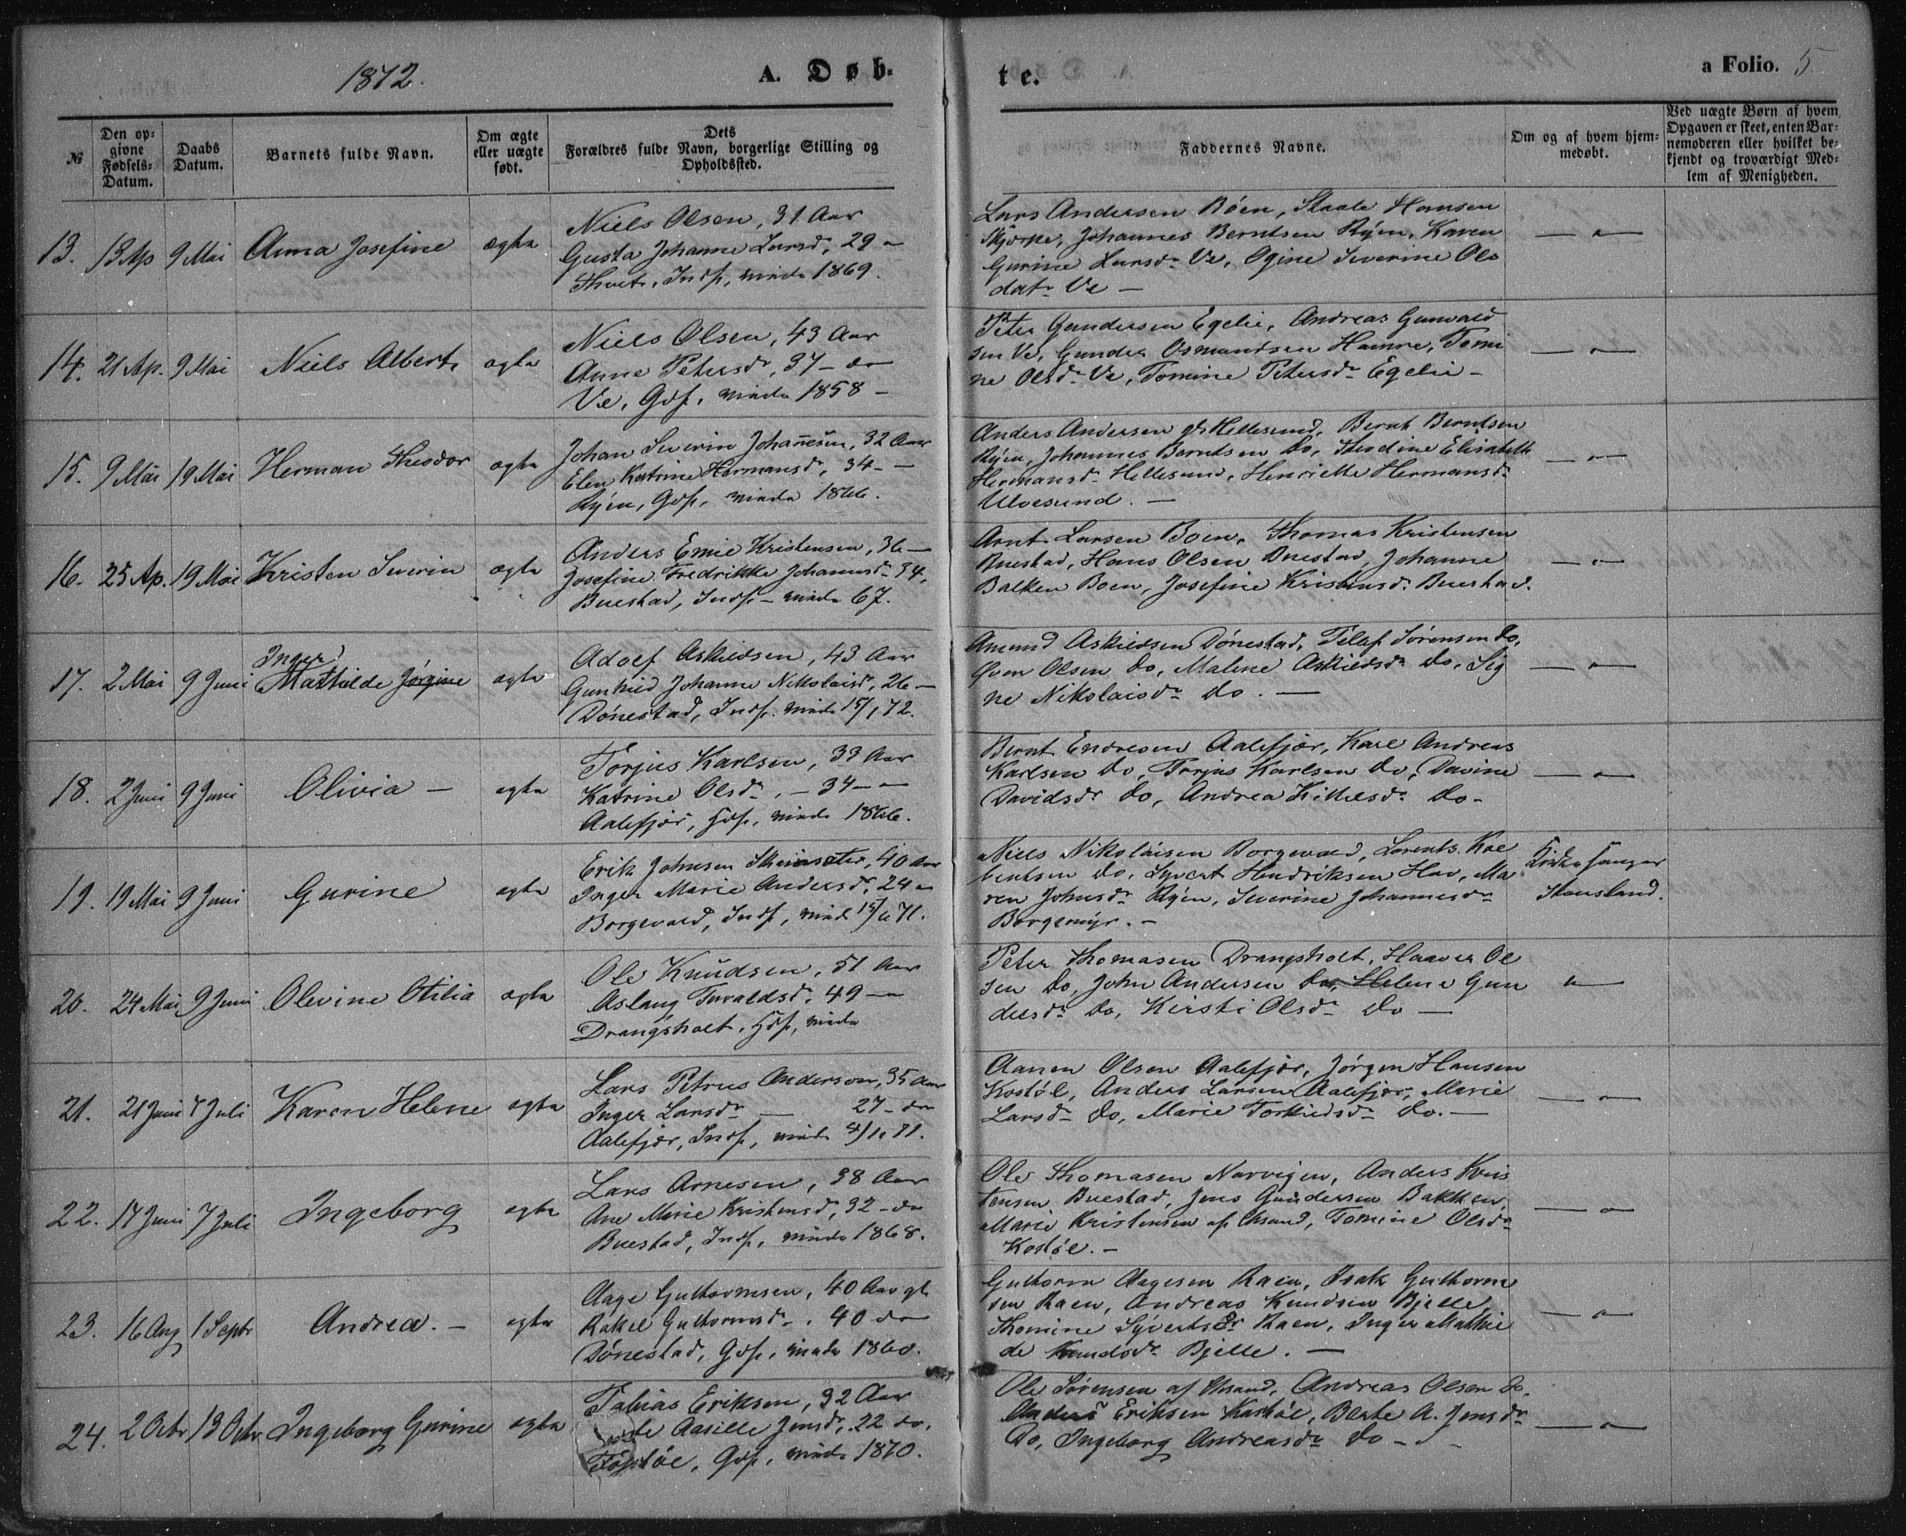 1872.
A. Døb-
te.
a Folio. 5
№
Den op-
givne
Fødsels-
Datum.
Daabs
Datum.
Barnets fulde Navn.
Om ægte
eller uægte
født.
Dets
Forældres fulde Navn, borgerlige Stilling og
Opholdssted.
Faddernes Navne.
Om og af hvem hjem-
medøbt.
Ved uægte Børn af hvem
Opgaven er skeet, enten Bar-
nemoderen eller hvilket be-
kjendt og troværdigt Med-
lem af Menigheden.
13. 13 Ap 9 Mai Anna Josefine ægte
Niels Olsen, 31 Aar
Gusta Johanne Larsd., 29 –
Indf, viede 1869.
Lars Andersen Böen, Staale Hansen
Johannes Berntsen Ryen, Karen
Gurine Larsdr Ve, Ogine Severine Ols
datr Ve –
14. 21 Ap. 9 Mai Niels Albert ægte
Niels Olsen, 43 Aar
Anne Petersdr, 37 – do
Ve, Gdf, viede 1858 –
Peter Gundersen Egelie, Andreas Gunvald
sen Ve, Gunder Osmundsen Hamre, Tomi
ne Olsdr Ve, Tomine Petersdr Egelie –
15. 9 Mai 19 Mai Herman Theodor ægte
Johan Severin Johanesen, 32 Aar
Elen Katrine Hermansdr, 34 –
Ryen, Gdf, viede 1866.
Anders Andersen Hellesund, Bernt Berntsen
Ryen, Johannes Berntsen Do, Theodine Elisabeth
Hermansdr Hellesund, Henriette Hermansdr
Ulvesund. –
16. 25 Ap. 19 Mai Kristen Severin ægte
Anders Emie Kristensen, 36 –
Josefine Fredrikke Johannsdr 34,
Buestad, Indf – viede 67.
Arnt Larsen Boen, Thomas Kristensen
Buestad, Hans Olsen Buestad, Johanne
Balken Boen, Josefine Kristensdr Buestad.
17. 2 Mai 9 Juni
Inger
Mathilde Jørgine ægte
Adolf Askildsen, 43 Aar
Gunhild Johanne Nikolaisdr, 26 –
Dönestad, Indf. viede 15/1 72.
Amund Askildsen Dönestad, Tellef Sörensen Do,
Sven Olsen Do, Malene Askildsdr Do, Sig
ne Nikolaisdr Do. –
18. 2 Juni 9 Juni Olivia – ægte
Torjus Karlsen, 33 Aar
Katrine Olsdr, – 34 –
Aalefjær, Gdf, viede 1866.
Bernt Endresen Aalefjær, Karl Andreas
Karlsen Do, Torjus Karlsen Do, Davine
Davidsdr Do, Andrea Kittelsdr Do –
19. 19 Mai 9 Juni Gurine ægte
Erik Johnsen 40 Aar
Inger Marie Andersdr, 24 –
Borgevold, Indf, viede 15/6 71.
Niels Nikolaisen Borgevold, Lorents Kal
bentsen Do, Syvert Hendriksen Hav, Ma
ren Johnsdr Ryen, Severine Johannesdr
Borgemyr. –
Kirkesanger
Stensland.
20. 24 Mai 9 Juni Olevine Otilia ægte
Ole Knudsen, 51 Aar
Aslaug Torvaldsdr, 49 –
Drangsholt, Gdf, viede
Peter Thomasen Drangsholt, Haaver Ol
sen Do, John Andersen Do, Helene Gun
dersdr Do, Kirsti Olsdr Do –
21. 21 Juni 7 Juli Karen Helene ægte
Lars Petrus Anderson, 35 Aar
Inger Larsdr – 27 – do
Aalefjær, Indf, viede 71.
Aanen Olsen Aalefjær, Jørgen Hansen
Kostöl, Anders Larsen Aalefjær, Marie
Larsdr Do, Marie Torkildsdr Do. –
22. 17 Juni 7 Juli Ingeborg ægte
Lars Arnesen, 38 Aar
Ane Marie Kristensd, 32 – do
Buestad, Indf, viede 1868.
Ole Thomasen Narvigen, Anders Kris
tensen Buestad, Jens Gundersen Bakken,
Marie Kristensen af Chrsand, Tomine Olsdr
Kostöl. –
23. 16 Aug 1 Septr Andrea. – ægte
Aage Guthormsen, 40 Aar gl.
Rakel Guthormsdr, 40 do
Dönestad, Gdf, viede 1860.
Guthorm Aagesen Raen, Isak Guthorm
sen Raen, Andreas Knudsen Bjelle,
Thomine Syvertsdr Raen, Inger Mathil
de Knudsdr Bjelle. –
24. 2 Octr 13 Octr Ingeborg Gurine ægte
Tobias Eriksen, 32 Aar
Aasille Jensdr, 22 do,
Gdf, viede 1870.
Ole Sörensen af Chrsand, Andreas Olsen Do,
Anders Eriksen Kostöl, Berte A. Jensdr
Do, Ingeborg Andreasdr Do –